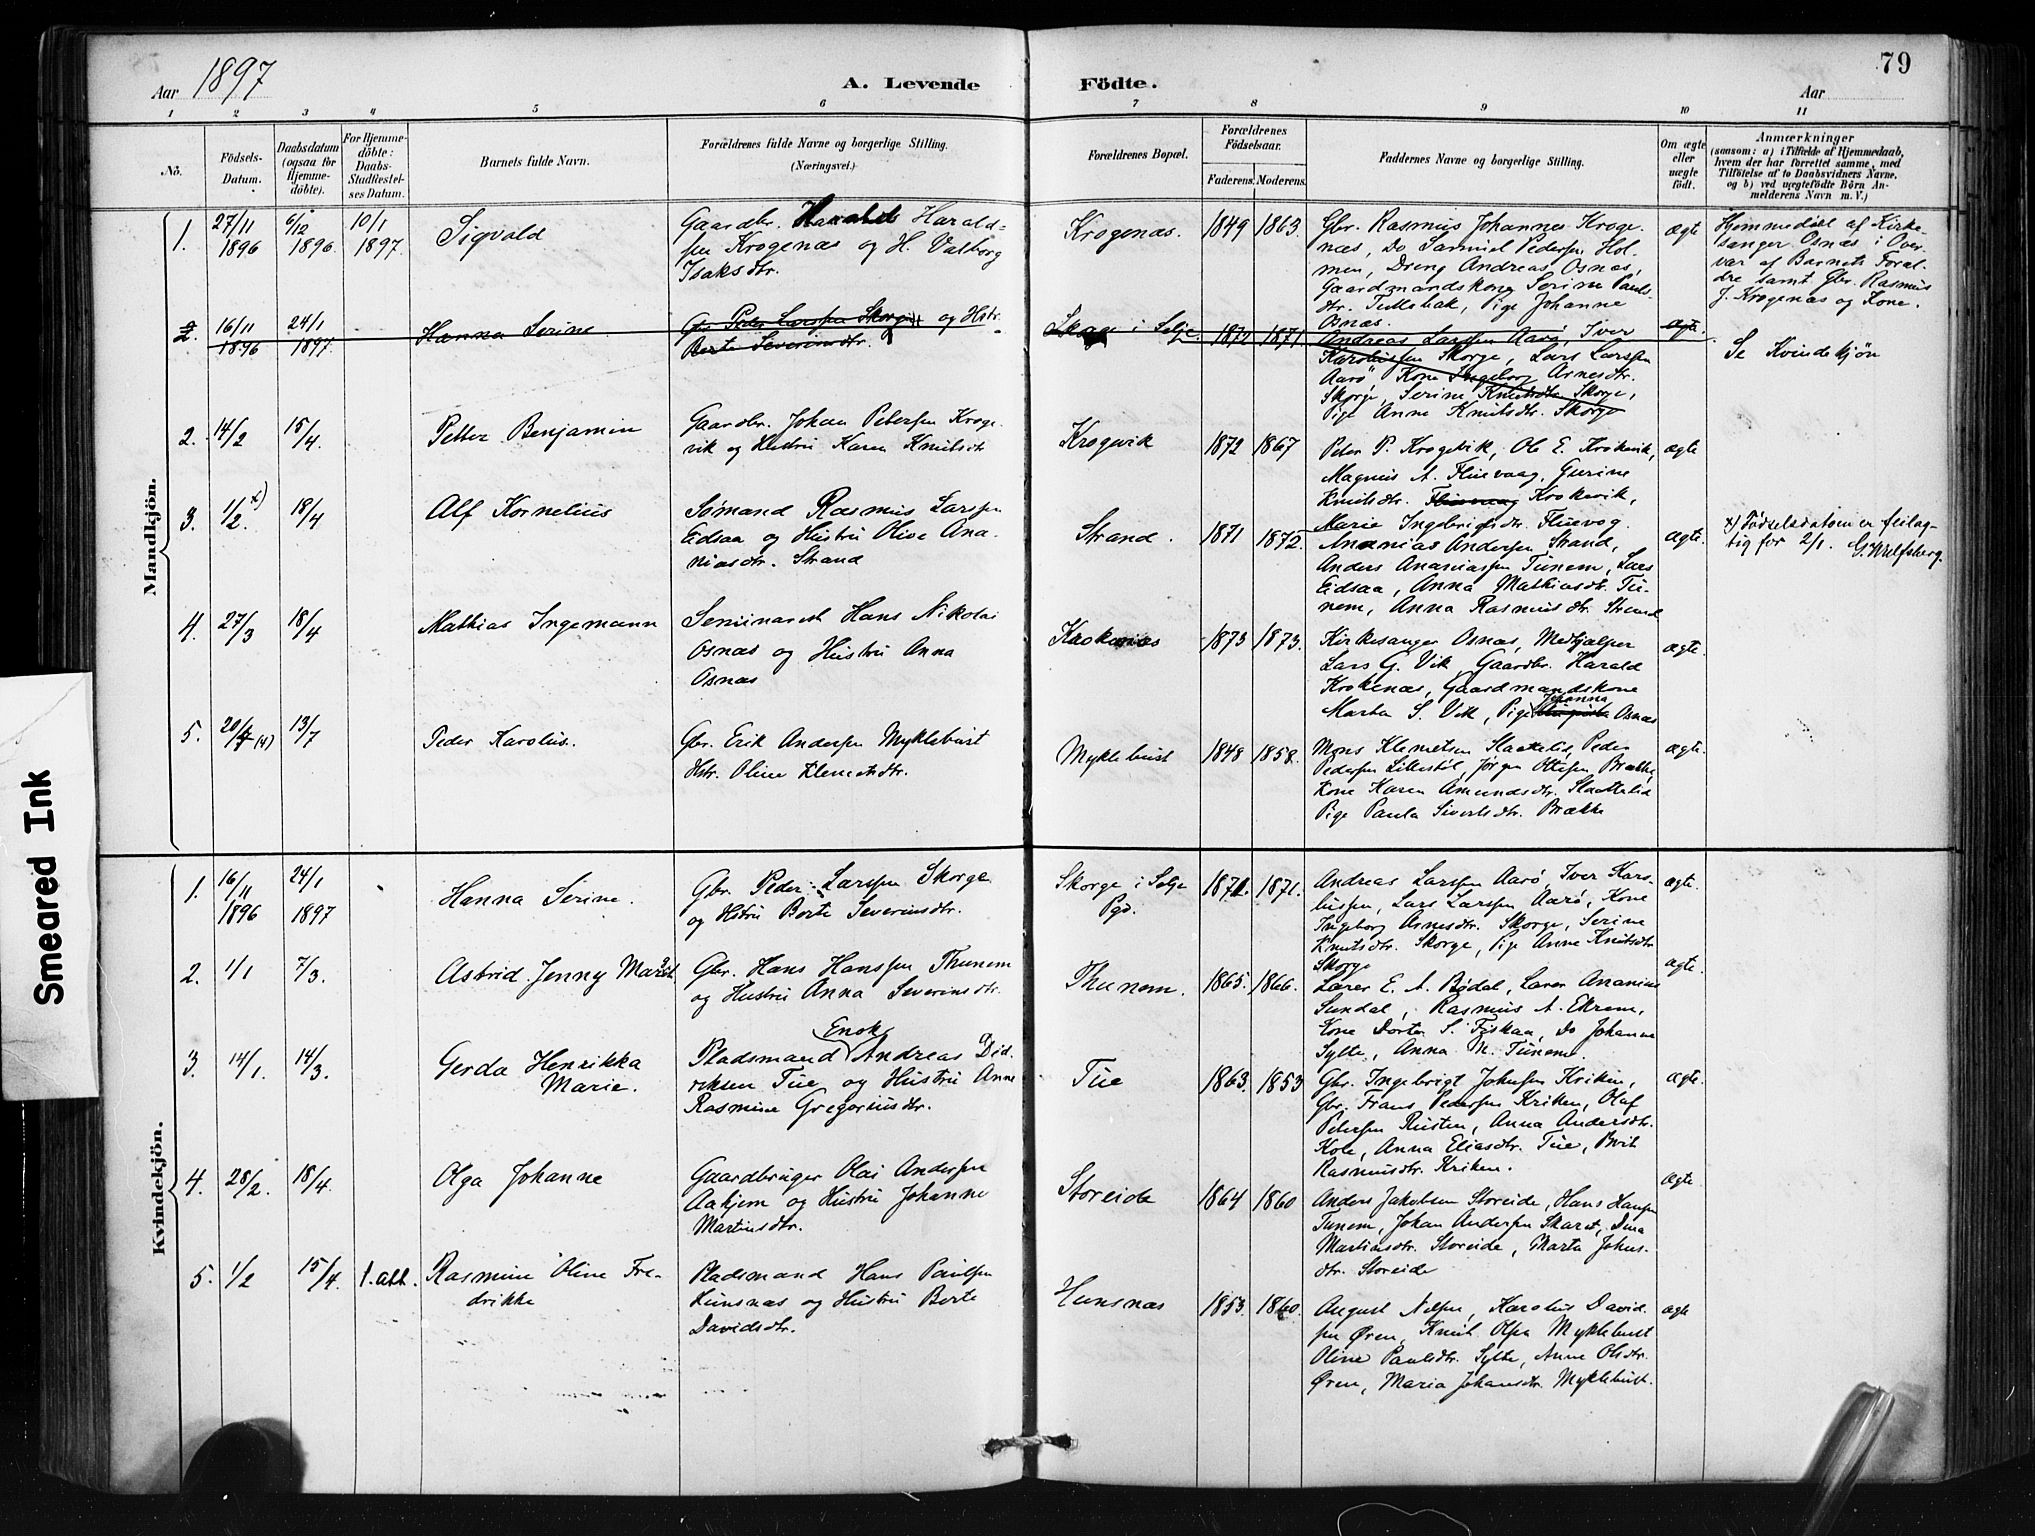 79
Aar 1897
A. Levende Födte.
Aar
1 2 3 4 5 6 7 8 9 10 11
No.
Födsels-
Datum.
Daabsdatum
(ogsaa for
Hjemme-
döbte).
For Hjemme-
döbte:
Daabs-
Stadfæstel-
ses Datum.
Barnets fulde Navn.
Forældrenes fulde Navne og borgerlige Stilling.
(Næringsvei.)
Forældrenes Bopæl.
Forældrenes
Födselsaar.
Faderens. Moderens.
Faddernes Navne og borgerlige Stilling.
Om ægte
eller
uægte
födt.
Anmærkninger
(saasom: a) i Tilfælde af Hjemmedaab,
hvem der har forrettet samme, med
Tilföielse af to Daabsvidners Navne,
og b) ved uægtefödte Börn An-
melderens Navn m. V.)
Mandkjön.
1. 27/11 1896 6/12 1896. 10/1 1897.
Sigvald
Gaardbr. Harald Harald-
sen Krogenæs og H. Valborg
Isaksdtr.
Krogenæs. 1849 1863.
Gbr. Rasmus Johannes Kroge-
næs, Do Samuel Pedersen Hol-
men, Dreng Andreas Osnæs,
Gaardmandskone Serine Pauls-
dtr. Tullebak, Pige Johanne
Osnæs.
ægte
Hjemmedøbt af Kirke-
sanger Osnæs i Over-
vær af Barnets Foræl-
dre samt Gbr. Rasmus
J. Krogenæs og Kone.
2. 16/11 1896 24/1 1897.
Hanna Serine
Gbr. Peder Larssen Skorge og Hstr.
Berte Severinsdtr.
Skorge i Selje 1872 1871.
Andreas Larssen Aarø, Iver
Karolussen Skorge, Lars Larssen
Aarø, Kone Ingeborg Arnesdtr.
Skorge, Serine Knutsdtr Skorge,
Pige Anne Knutsdtr. Skorge
ægte.
Se Kvindekjøn
2. 14/2 15/4.
Petter Benjamin
Gaardbr. Johan Petersen Kroge-
vik og Hustru Karen Knutsdtr
Krogevik 1872 1867
Peter P. Krogevik, Ole E. Krokevik,
Magnus A. Fluevaag, Gurine
Knutsdtr. Fluevaag Krokevik,
Marie Ingebrigtsdtr. Fluevog.
ægte
3. 1/2. x) 18/4
Alf Kornelius
Sømand Rasmus Larssen
Eidsaa og Hustru Olive Ana-
niasdtr. Strand
Strand. 1871 1872.
Ananias Andersen Strand,
Anders Ananiassen Tunem, Lars
Eidsaa, Anna Mathiasdtr. Tu-
nem, Anna Rasmusdtr. Strand
ægte.
x) Fødselsdatoen er feilag-
tig for 2/1.
4. 27/3 18/4
Mathias Ingemann
Seminarist Hans Nikolai
Osnæs og Hustru Anna
Osnæs
Krokenæs 1873 1873.
Kirkesanger Osnæs, Medhjælper
Lars G. Vik, Gaardbr. Harald
Krokenæs, Gaardmandskone
Marta S. Vik, Pige Johanna Osnæs
ægte.
5. 13/7
Peder Karolus.
Gbr. Erik Andersen Myklebust
Hstr. Oline Klemetsdtr.
Myklebust 1848 1858.
Mons Klemetsen Slaatelid, Peder
Pedersen Lillestøl, Jørgen Ottesen Brække,
Kone Karen Amundsdtr. Slaattelid
Pige Paula Sivertsdtr. Brække
ægte.
Kvindekjön.
1. 16/11 1896 24/1 1897
Hanna Serine.
Gbr. Peder Larssen Skorge
og Hstru Berte Severinsdtr.
Skorge i Selje
Pgd. 1872. 1871.
Andreas Larssen Aarø, Iver Karo-
lussen, Lars Larssen Aarø, Kone
Ingeborg Arnesdtr. Skorge, Serine
Knutsdtr. Skorge, Pige Anne Knutsdtr
Skorge
ægte.
2. 1/1 7/3.
Astrid Jenny
Gbr. Hans Hanssen Thunem
og Hustru Anna Severinsdtr.
Thunem. 1865. 1866.
Lærer E. A. Bødal, Lærer Ananias
Sundal, Rasmus A. Ekrem,
Kone Dortea S. Fiskaa, Do Johanne
Sylte, Anna M. Tunem.
ægte.
3. 14/1. 14/3.
Gerda Henrikka
Marie.
Enok
Pladsmand Andreas Did-
riksen Tue og Hustru Anne
Rasmine Gregoriusdtr.
Tue 1863. 1853
Gbr. Ingebrigt Johnsen Kriken,
Gbr. Frans Pedersen Kriken, Olaf
Petersen Rusten, Anna Andersdtr.
Kole, Anna Eliasdtr. Tue, Brit
Rasmusdtr. Kriken.
ægte.
4. 28/2. 18/4.
Olga Johanne
Gaardbruger Olai Andersen
Aahjem og Hustru Johanne
Martinusdtr.
Storeide 1864 1860
Anders Jakobsen Storeide, Hans Hansen
Tunem, Johan Andersen Skaret, Dina
Martinusdtr. Storeide, Marta Johns-
dtr. Storeide
ægte
5. 1/2 15/4. 1. att.
Rasmine Oline Fre-
drikke
Pladsmand Hans Paulsen
Hunsnæs og Hustru Berte
Davidsdtr.
Hunsnæs 1853. 1860.
August Nilsen, Karolus David-
sen Øren, Knut Olsen Myklebust
Oline Paulsdtr. Sylte, Anne Olsdtr.
Øren, Maria Johansdtr. Myklebust.
ægte
Smeared Ink